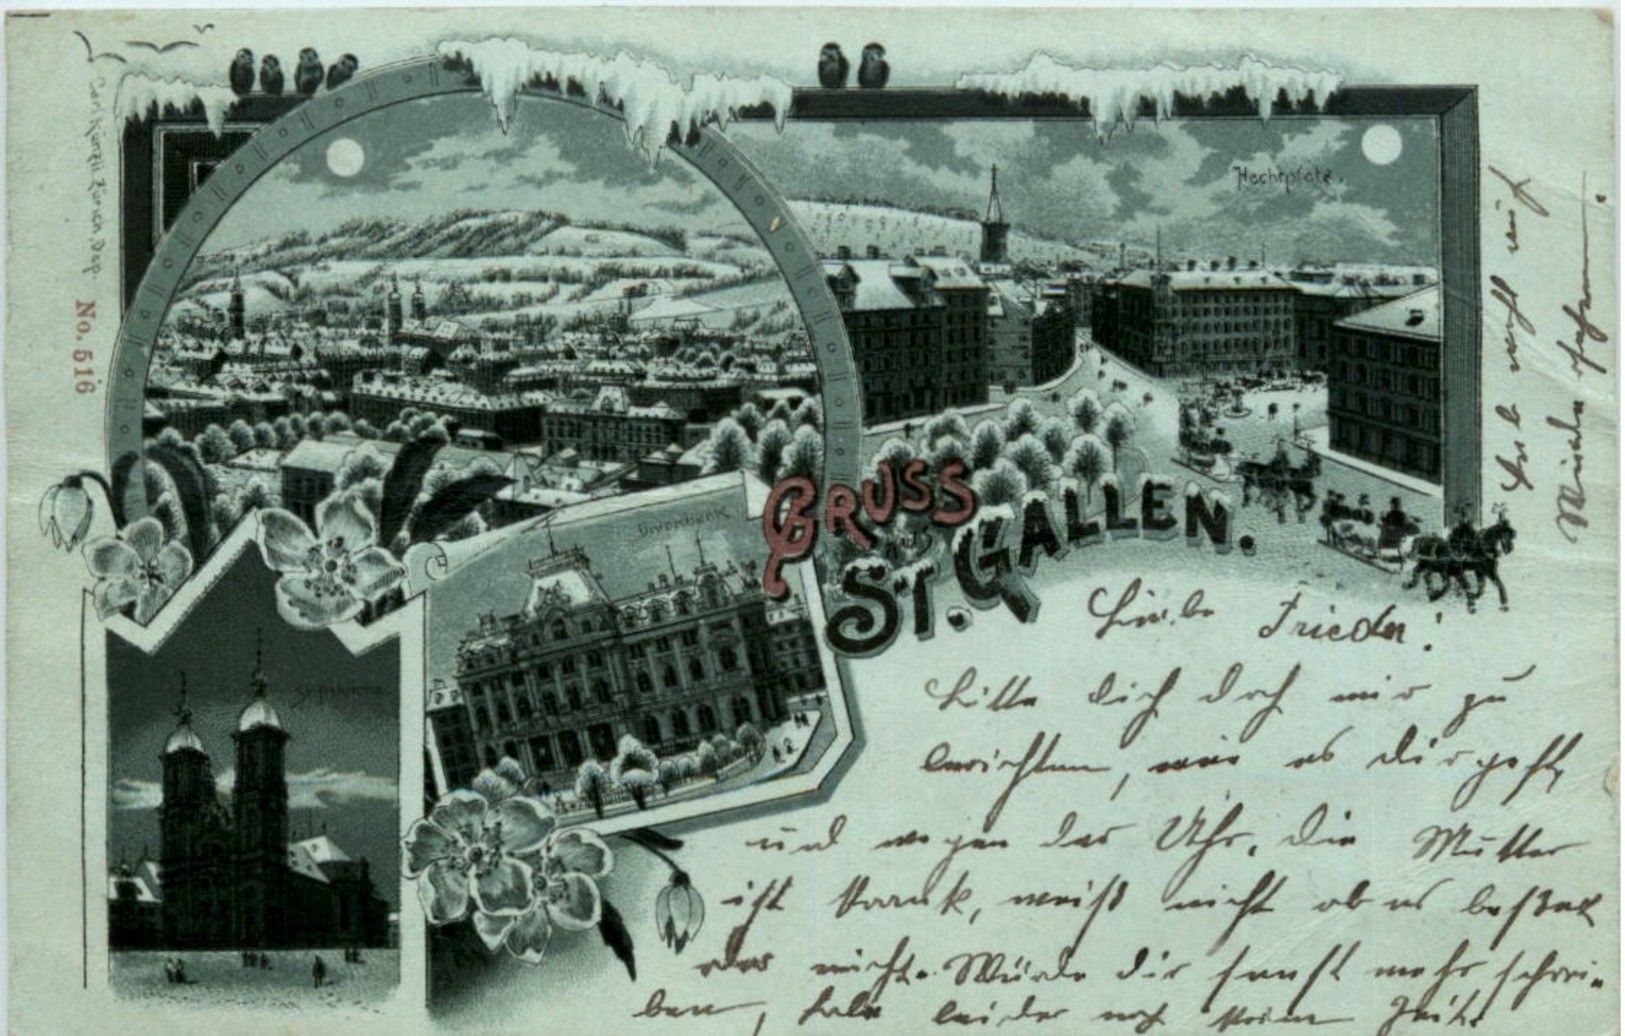 Carl Künzli Zürich, Dep.
No. 516
Hechtplatz.
Unionbank.
Stiftskirche.
GRUSS
ST. GALLEN.
Liebe Frieda!
Bitte dich doch mir zu
berichten, wie es dir geht,
und wegen der Uhr, die Mutter
ist krank, weiß nicht ob es bessert
oder nicht. Würde dir sonst mehr schrei-
ben, habe leider noch keine Zeit.